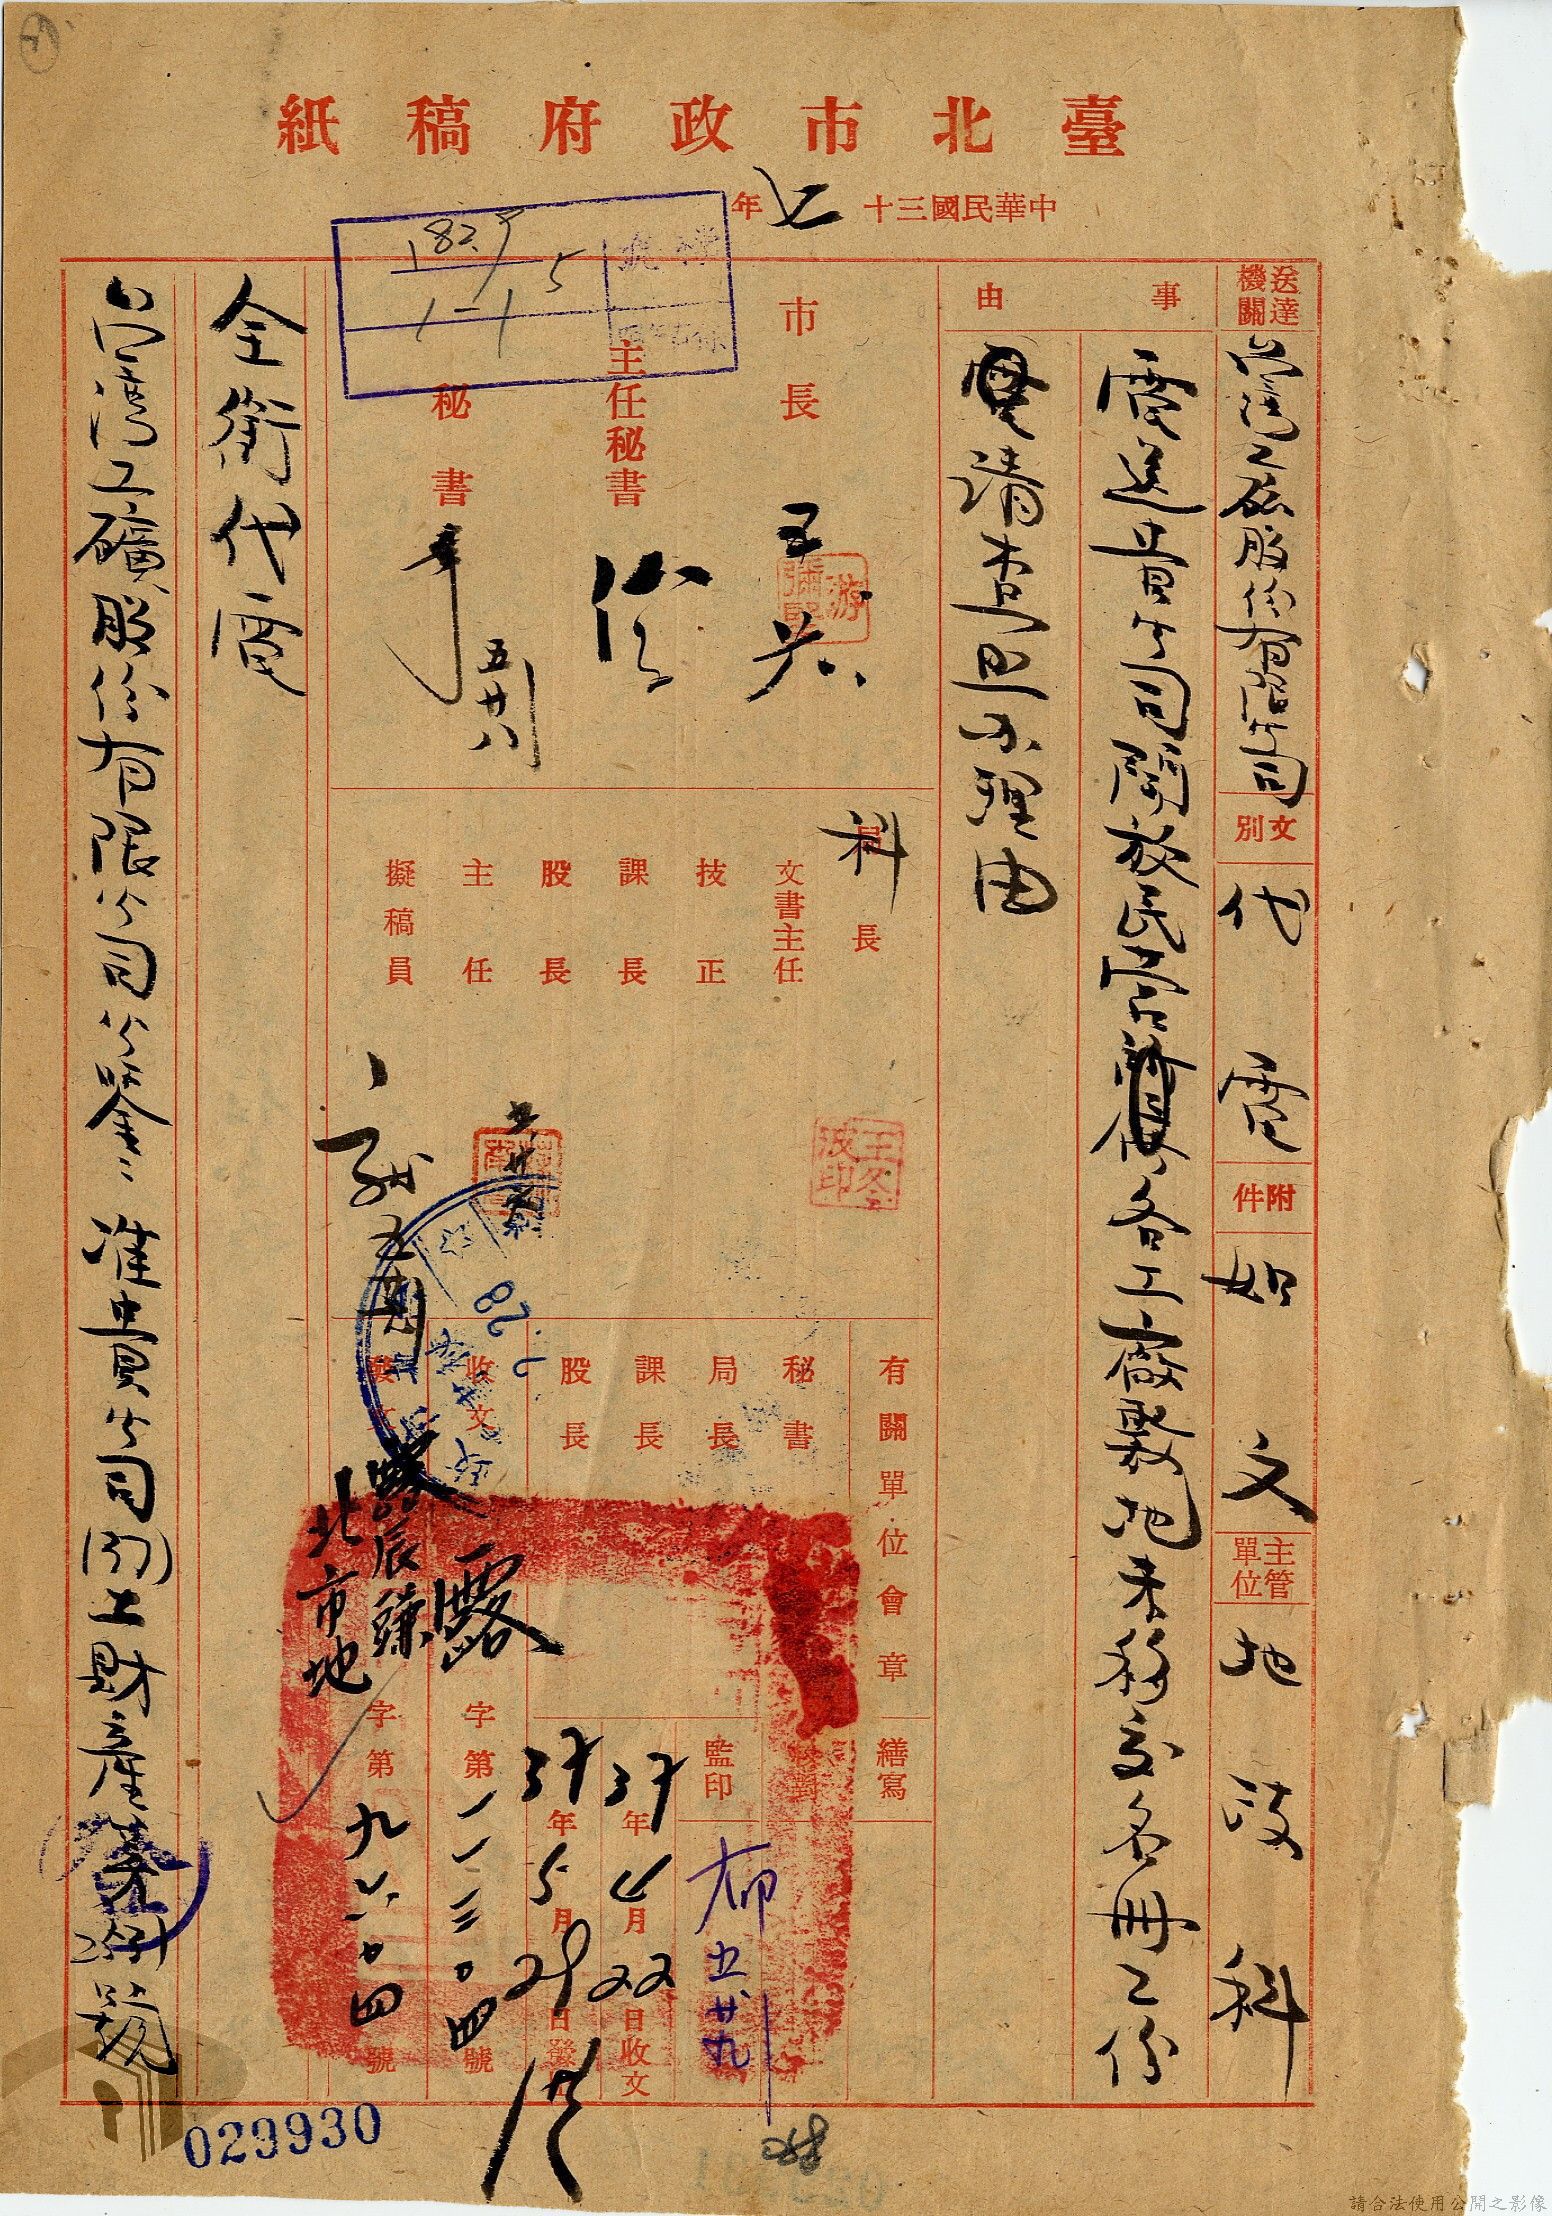 臺北市政府稿紙
中華民國三十七年
送達機關
台灣工礦股份有限公司
文別
代電
附件
如文
主管單位
地政科
事由
電送貴公司開放民營各工廠敷地未移交名冊乙份
請查照办理由
市長
主任秘書
秘書
五廿八
科長
文書主任
技正
課長
股長
主任
擬稿員
王冬波印
有關單位會章
秘書
局長
課長
股長
收文
發文
繕寫
校對
監印
五廿九
37年4月22日收文
37年5月29日發文
字第一一三0四號
辰
北市地
字第九六0四號
全銜代電
台灣工礦股份有限公司公鑒:准貴公司(37)工財產
號
1-1
5
029930
請合法使用公開之影像